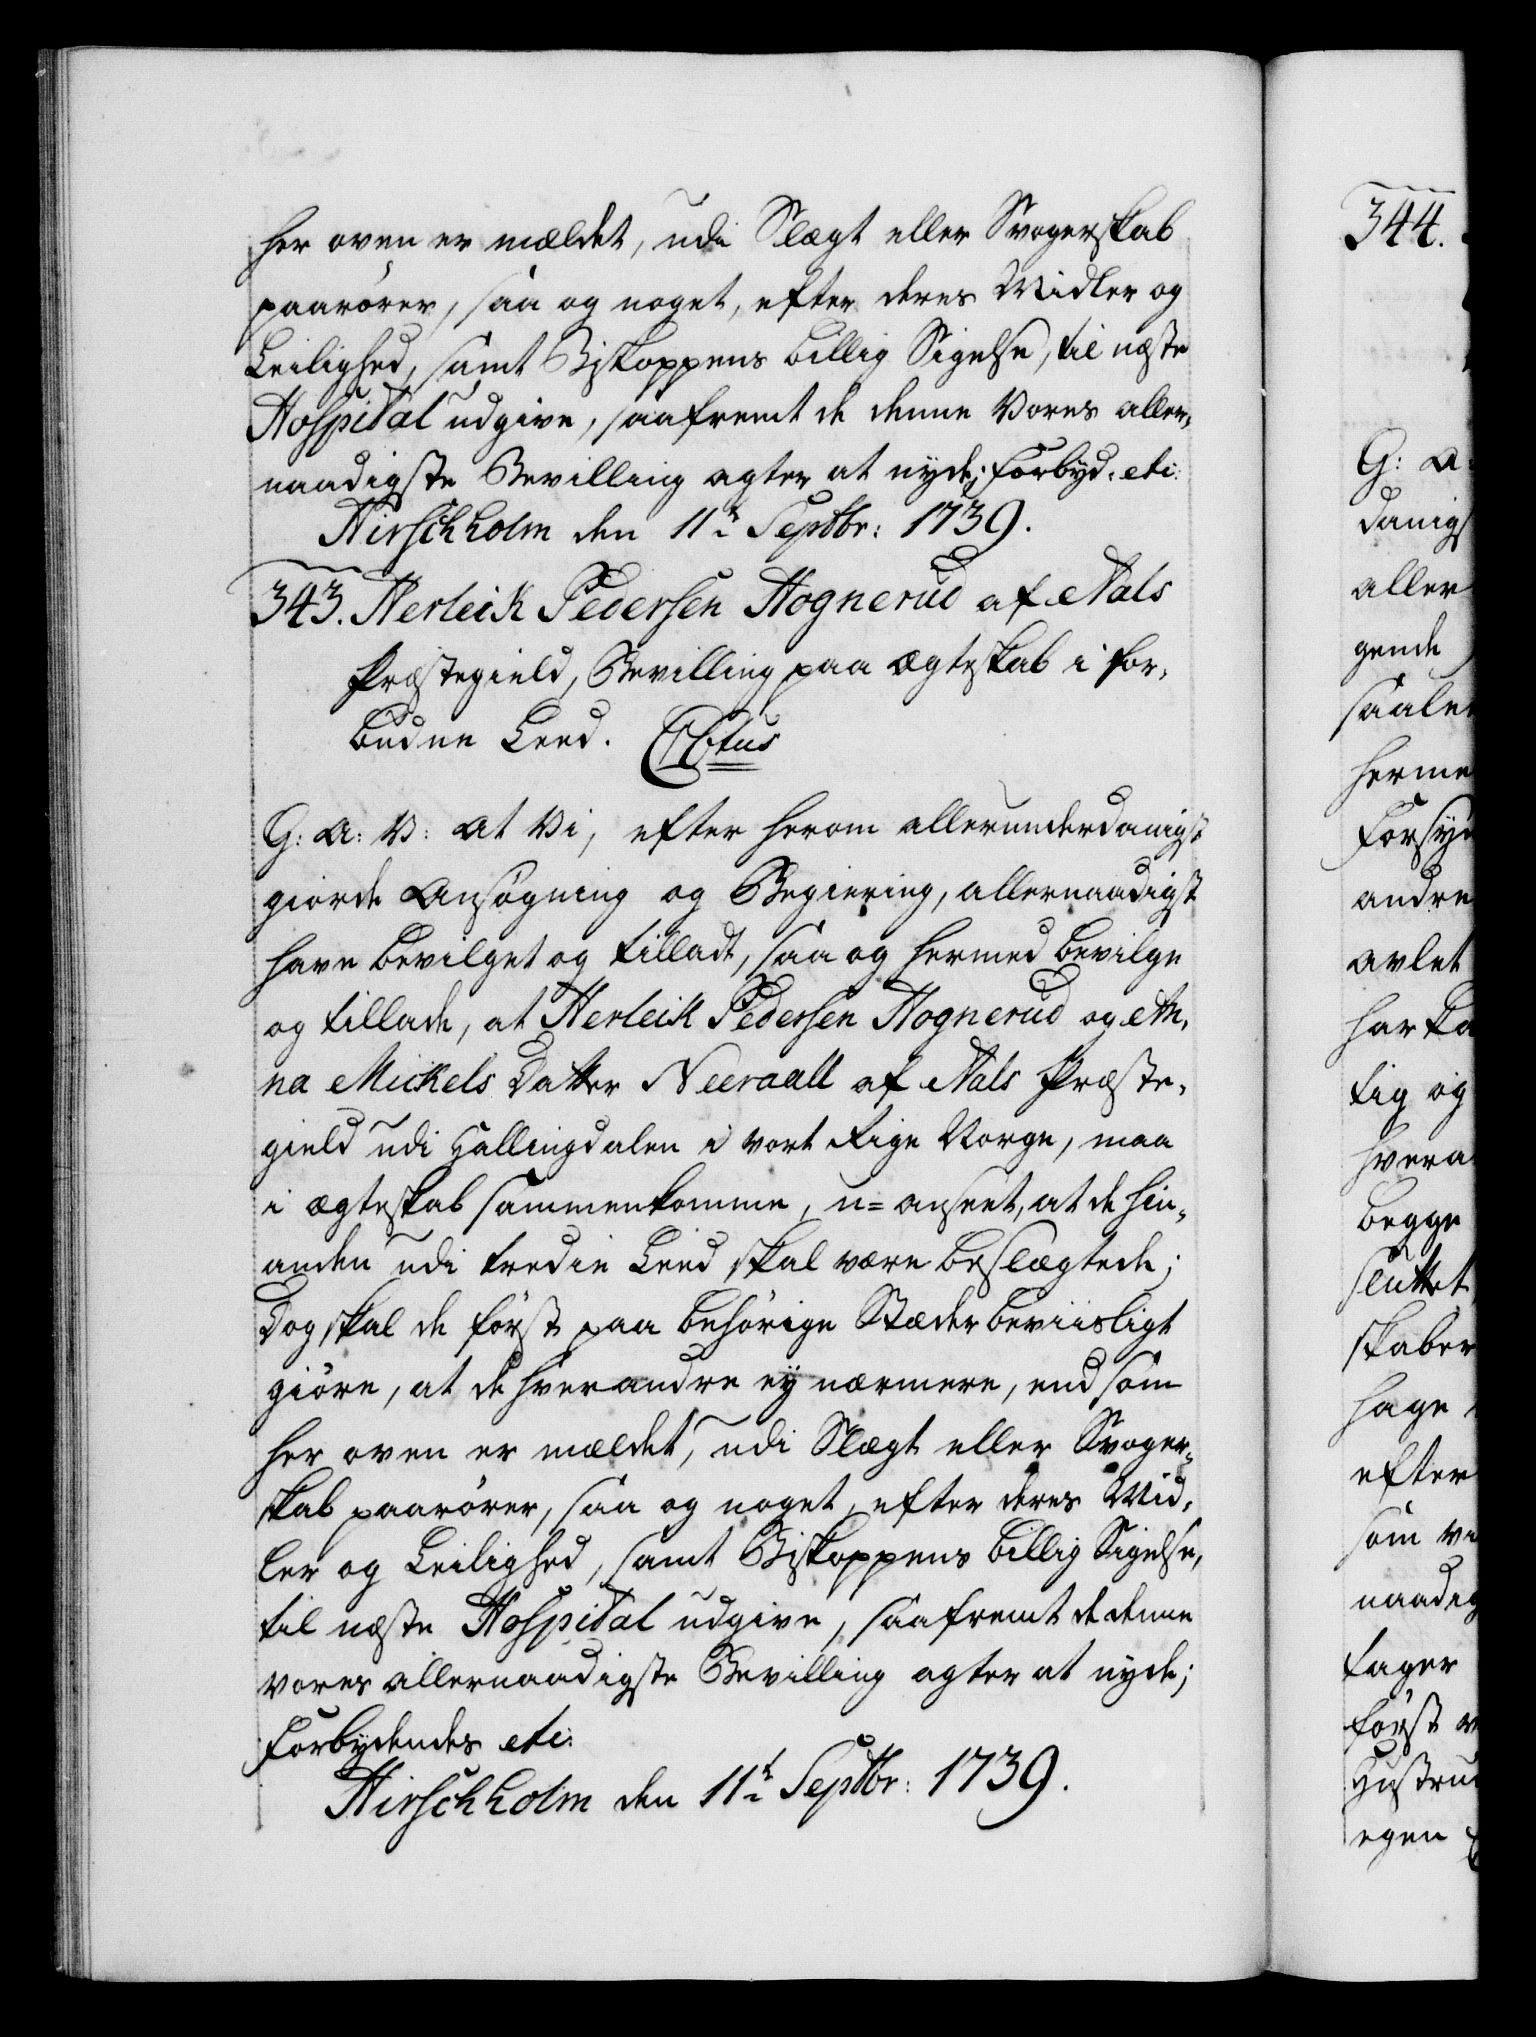 her oven er meldet, udi Slægt eller Svogerskab
paarører, saa og noget, efter deres Midler og
Leilighed, samt Biskoppens billig Sigelse, til næste
Hospital udgive, saafremt de denne Vores aller-
naadigste Bevilling agter at nyde; Forbyd: etc:
Hirschholm den 11te Septbr: 1739.
343. Herleik Pedersen Hognerud af Aals
Præstegield, Bevilling paa Ægteskab i for-
budne Leed.
G: A: V: At Vi, efter herom allerunderdanigst
giorde Ansøgning og Begiering, allernaadigst
have bevilget og tilladt, saa og hermed bevilge
og tillade, at Herleik Pedersen Hognerud og An-
na Mickels Datter Neeraall af Aals Præste-
gield udi Hallingdalen i vort Rige Norge, maa
i Ægteskab sammenkomme, u=anseet, at de hin-
anden udi tredie Leed skal være beslægtede;
Dog skal de først paa behørige Stæder beviisligt
giøre, at de hverandre ey nærmere, end som
her oven er meldet, udi Slægt eller Svoger-
skab paarører, saa og noget, efter deres Mid-
ler og Leilighed, samt Biskoppens billig Sigelse,
til næste Hospital udgive, saafremt de denne
vores allernaadigste Bevilling agter at nyde;
Forbydendes etc:
Hirschholm den 11te Septbr: 1739.
344.
G: A:
danigs
aller
gende
saale
herme
Forsyn
andre
avlet
har la
lig og
hvera
begge
sluttet
skaber
hage
efter
som vi
naadig
tager
først
Hustru
egen